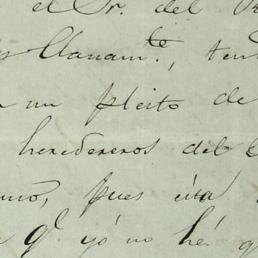 el Sr. del
Llanamte, ten
un pleito de
herederos del
pues esta
qe yo no hé q